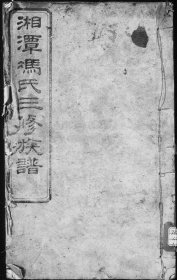 湘潭馮氏三修族譜